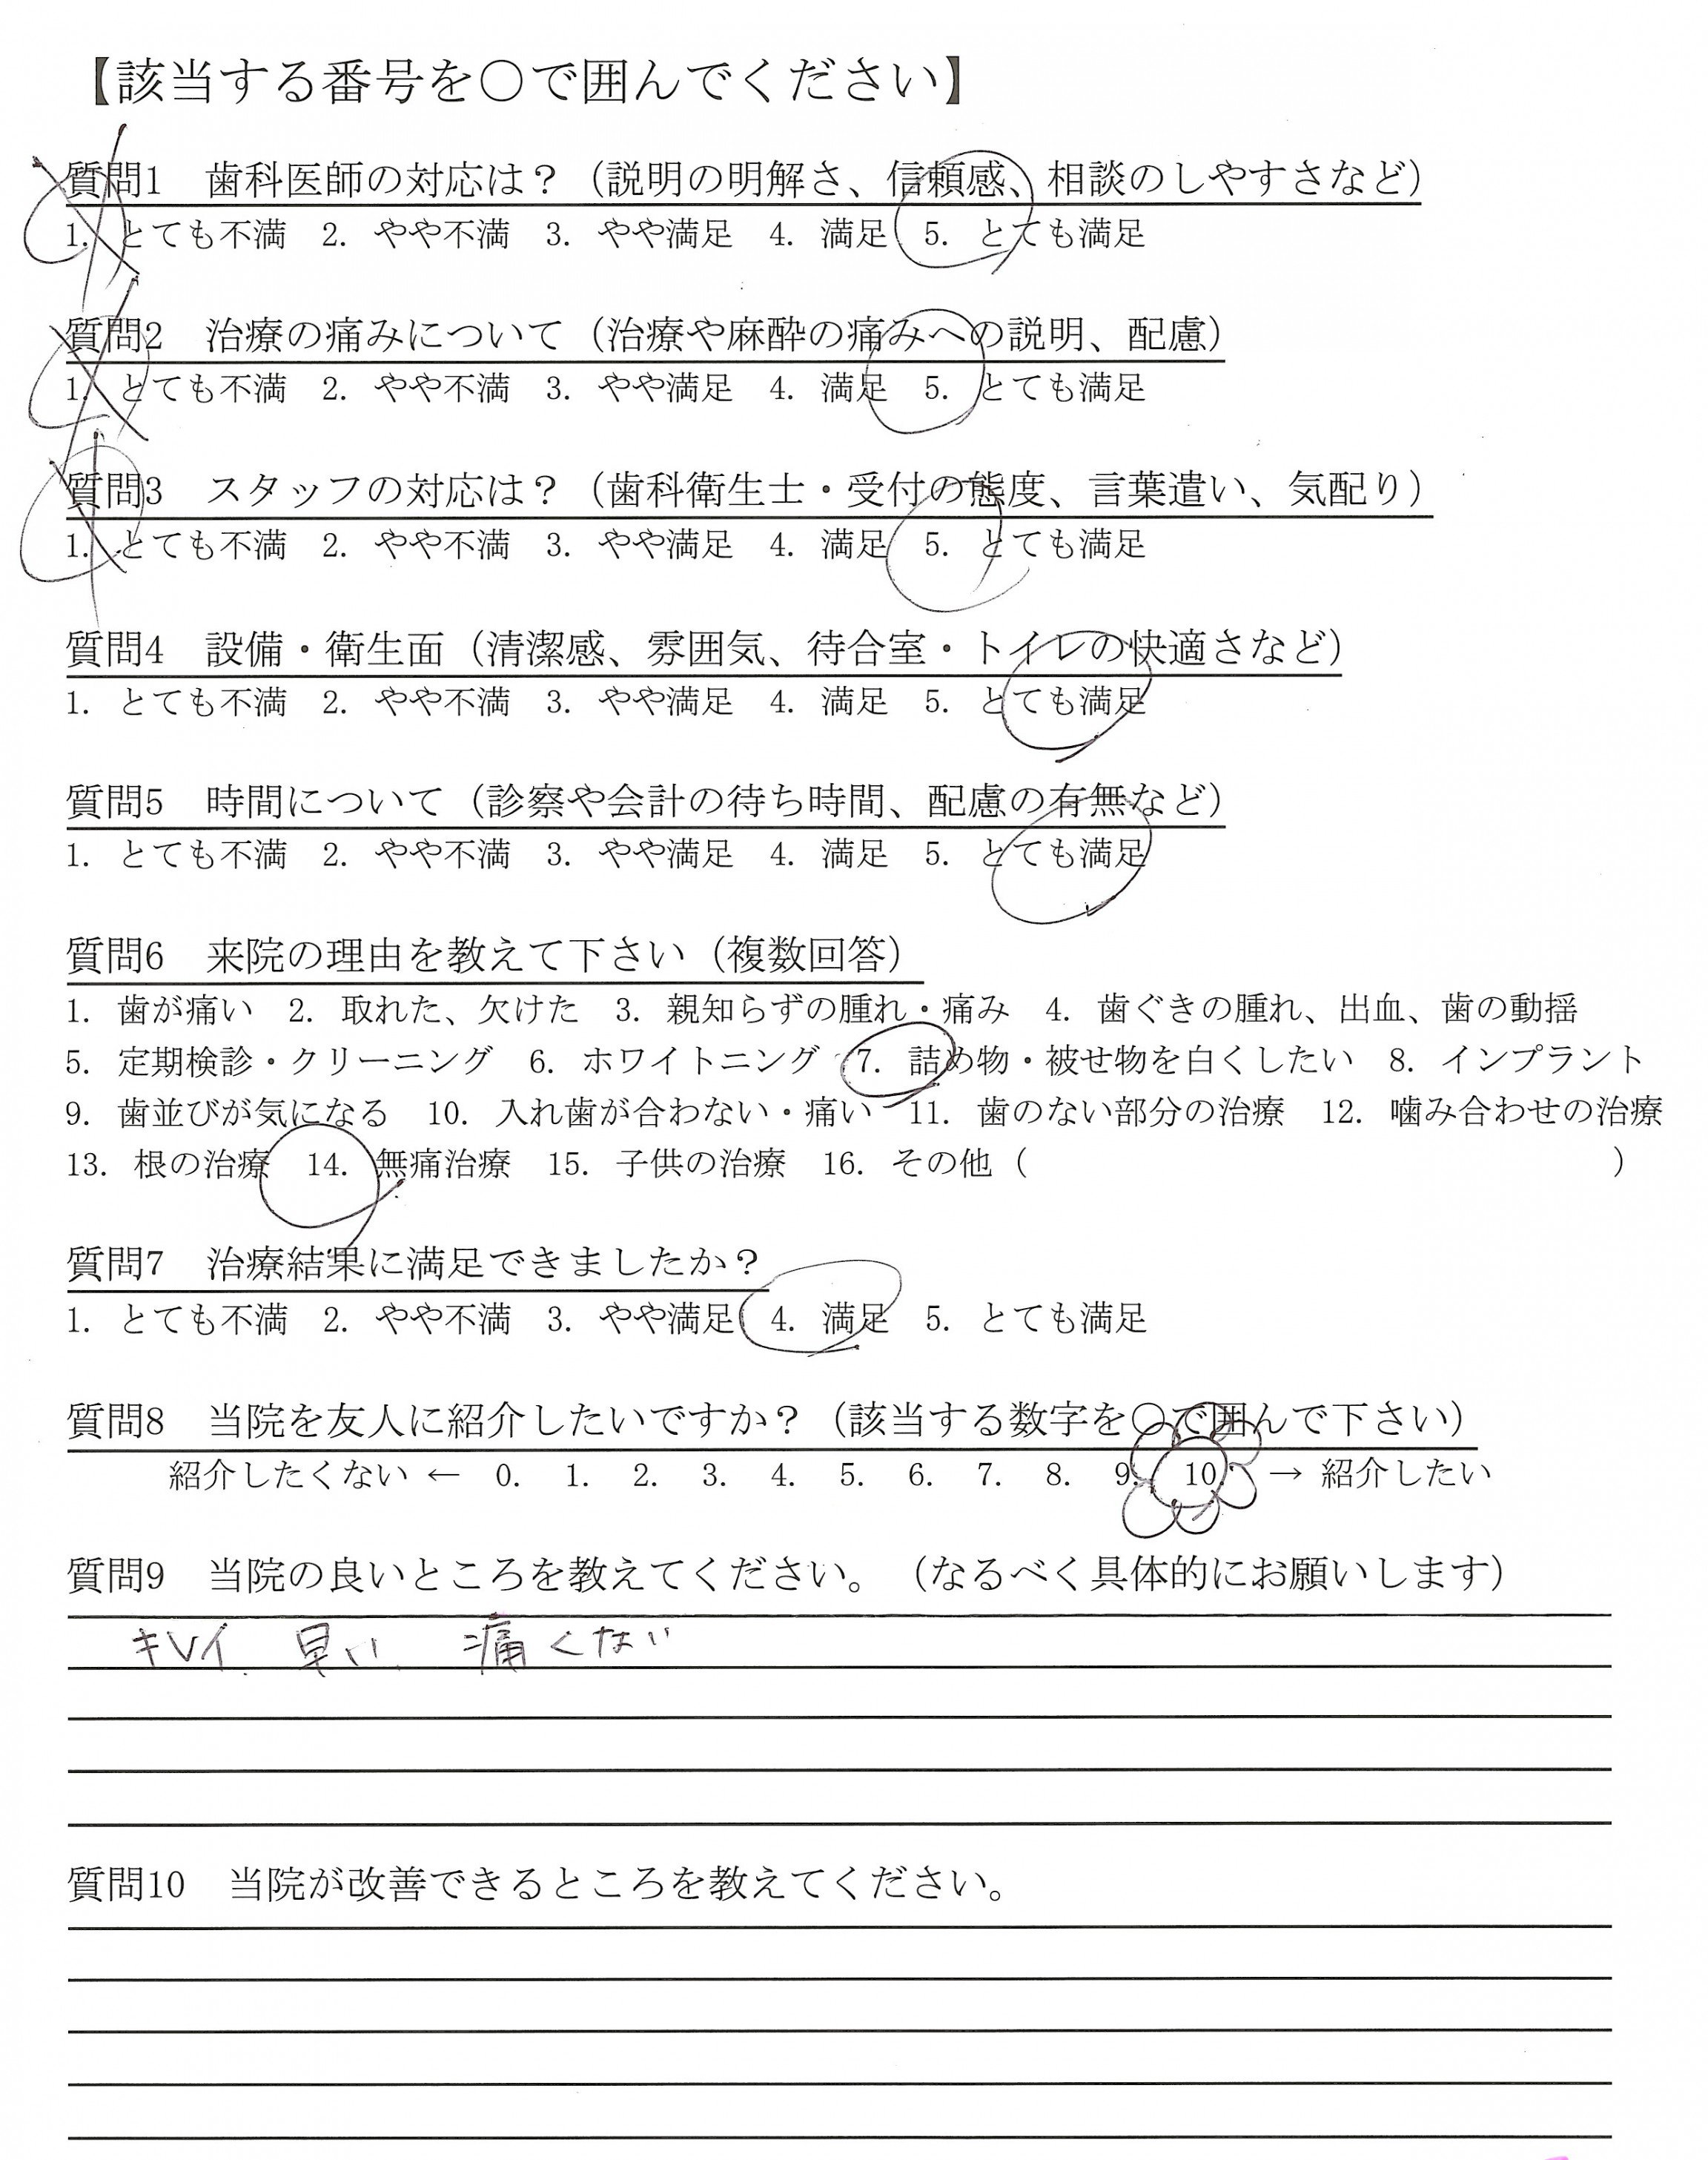 【該当する番号を○で囲んでください】
質問1 歯科医師の対応は？（説明の明解さ、信頼感、相談のしやすさなど）
1. とても不満 2. やや不満 3. やや満足 4. 満足 5. とても満足
質問2 治療の痛みについて（治療や麻酔の痛みへの説明、配慮）
1. とても不満 2. やや不満 3. やや満足 4. 満足 5. とても満足
質問3 スタッフの対応は？（歯科衛生士・受付の態度、言葉遣い、気配り）
1. とても不満 2. やや不満 3. やや満足 4. 満足 5. とても満足
質問4 設備・衛生面（清潔感、雰囲気、待合室・トイレの快適さなど）
1. とても不満 2. やや不満 3. やや満足 4. 満足 5. とても満足
質問5 時間について（診察や会計の待ち時間、配慮の有無など）
1. とても不満 2. やや不満 3. やや満足 4. 満足 5. とても満足
質問6 来院の理由を教えて下さい（複数回答）
1. 歯が痛い 2. 取れた、欠けた 3. 親知らずの腫れ・痛み 4. 歯ぐきの腫れ、出血、歯の動揺
5. 定期検診・クリーニング 6. ホワイトニング 7. 詰め物・被せ物を白くしたい 8. インプラント
9. 歯並びが気になる 10. 入れ歯が合わない・痛い 11. 歯のない部分の治療 12. 噛み合わせの治療
13. 根の治療 14. 無痛治療 15. 子供の治療 16. その他（ ）
質問7 治療結果に満足できましたか？
1. とても不満 2. やや不満 3. やや満足 4. 満足 5. とても満足
質問8 当院を友人に紹介したいですか？（該当する数字を○で囲んで下さい）
紹介したくない ← 0. 1. 2. 3. 4. 5. 6. 7. 8. 9. 10. → 紹介したい
質問9 当院の良いところを教えてください。（なるべく具体的にお願いします）
キレイ、早い、痛くない
質問10 当院が改善できるところを教えてください。